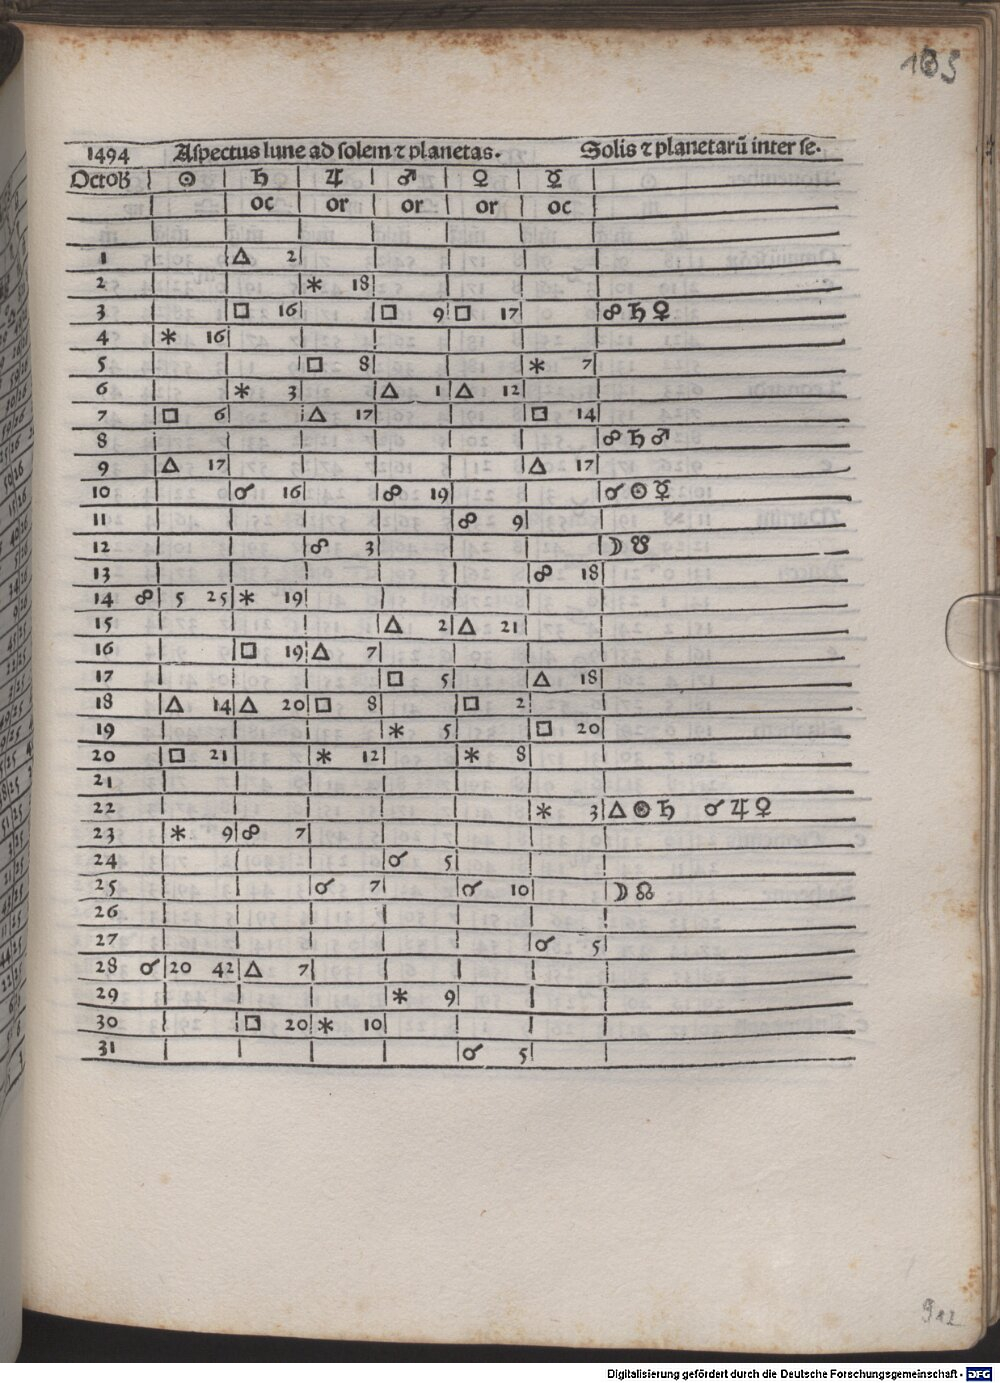 183
1494 Aspectus lune ad solem ⁊ planetas. Solis ⁊ planetarũ inter se.
Octob ☉ ♄ ♃ ♂ ♀ ☿
oc or or or oc
1 △ 2
2 ⚹ 18
3 □ 16 □ 9 □ 17 ☍ ♄ ♀
4 ⚹ 16
5 □ 8 ⚹ 7
6 ⚹ 3 △ 1 △ 12
7 □ 6 △ 17 □ 14
8 ☍ ♄ ♂
9 △ 17 △ 17
10 ☌ 16 ☍ 19 ☌ ☉ ☿
11 ☍ 9
12 ☍ 3 ☽ ☋
13 ☍ 18
14 ☍ 5 25 ⚹ 19
15 △ 2 △ 21
16 □ 19 △ 7
17 □ 5 △ 18
18 △ 14 △ 20 □ 8 □ 2
19 ⚹ 5 □ 20
20 □ 21 ⚹ 12 ⚹ 8
21
22 ⚹ 3 △ ☉ ♄ ☌ ♃ ♀
23 ⚹ 9 ☍ 7
24 ☌ 5
25 ☌ 7 ☌ 10 ☽ ☊
26
27 ☌ 5
28 ☌ 20 42 △ 7
29 ⚹ 9
30 □ 20 ⚹ 10
31 ☌ 5
912
Digitalisierung gefördert durch die Deutsche Forschungsgemeinschaft - DFG